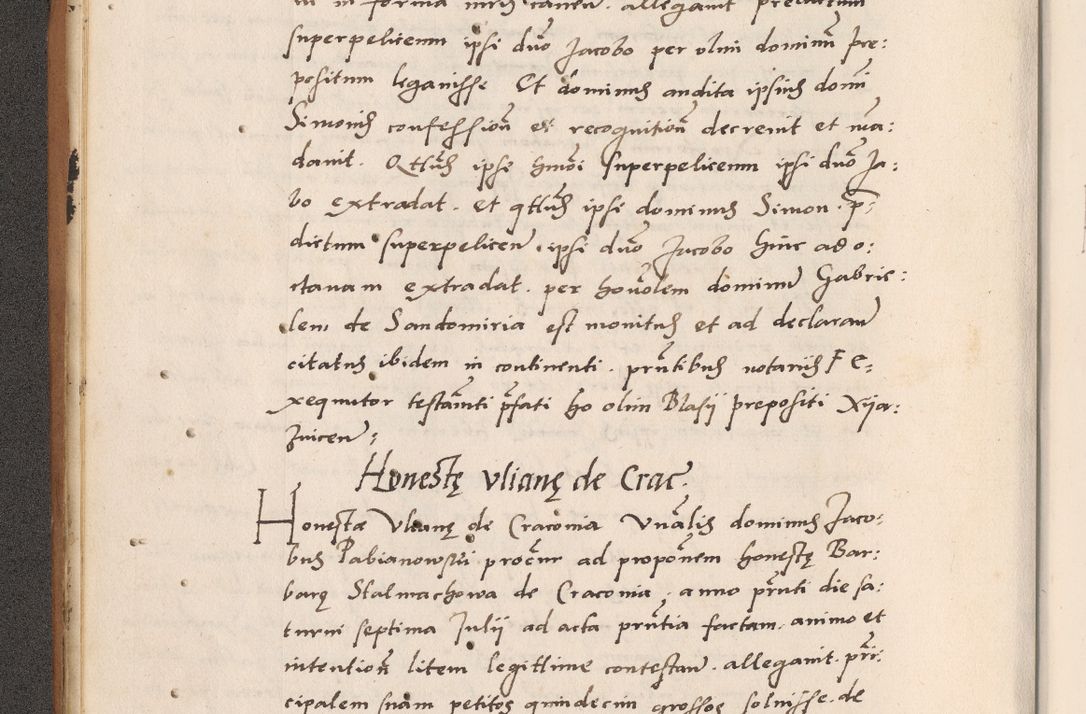 superpeliceum ipsi dno Jacobo per olim dominum pre:
positum legauisse Et dominus audita ipsius domi
Simonis confession et recognition decreuit et ma:
dauit. Qtus ipse hmoi superpeliceum ipsi dno Ja:
bo extradat. et qtus ipse dominus Simon p:
dictum superpeliceu ipsi dno Jacobo hinc ad o:
ctauam extradat. per honolem dominu Gabrie:
lem de Sandomiria est monitus et ad declarau
citatus ibidem in continenti. pntibus notariis Et E:
xequutor testamti pfati ho olim Blasii prepositi Xiia:
znicen:
Honestę vlianę de Crac.
Honestæ Vlianę de Craconia Vnalis dominus Jaco:
bus Pabianowski procur ad proponem honestę Bar:
barę Stalmachowa de Craconia, anno pnti die sa:
turni septima Julii ad acta pntia factam. animo et
intention litem legittime contestan. allegauit. prī:
cipalem suam petitos quindecim grossos soluisse. de